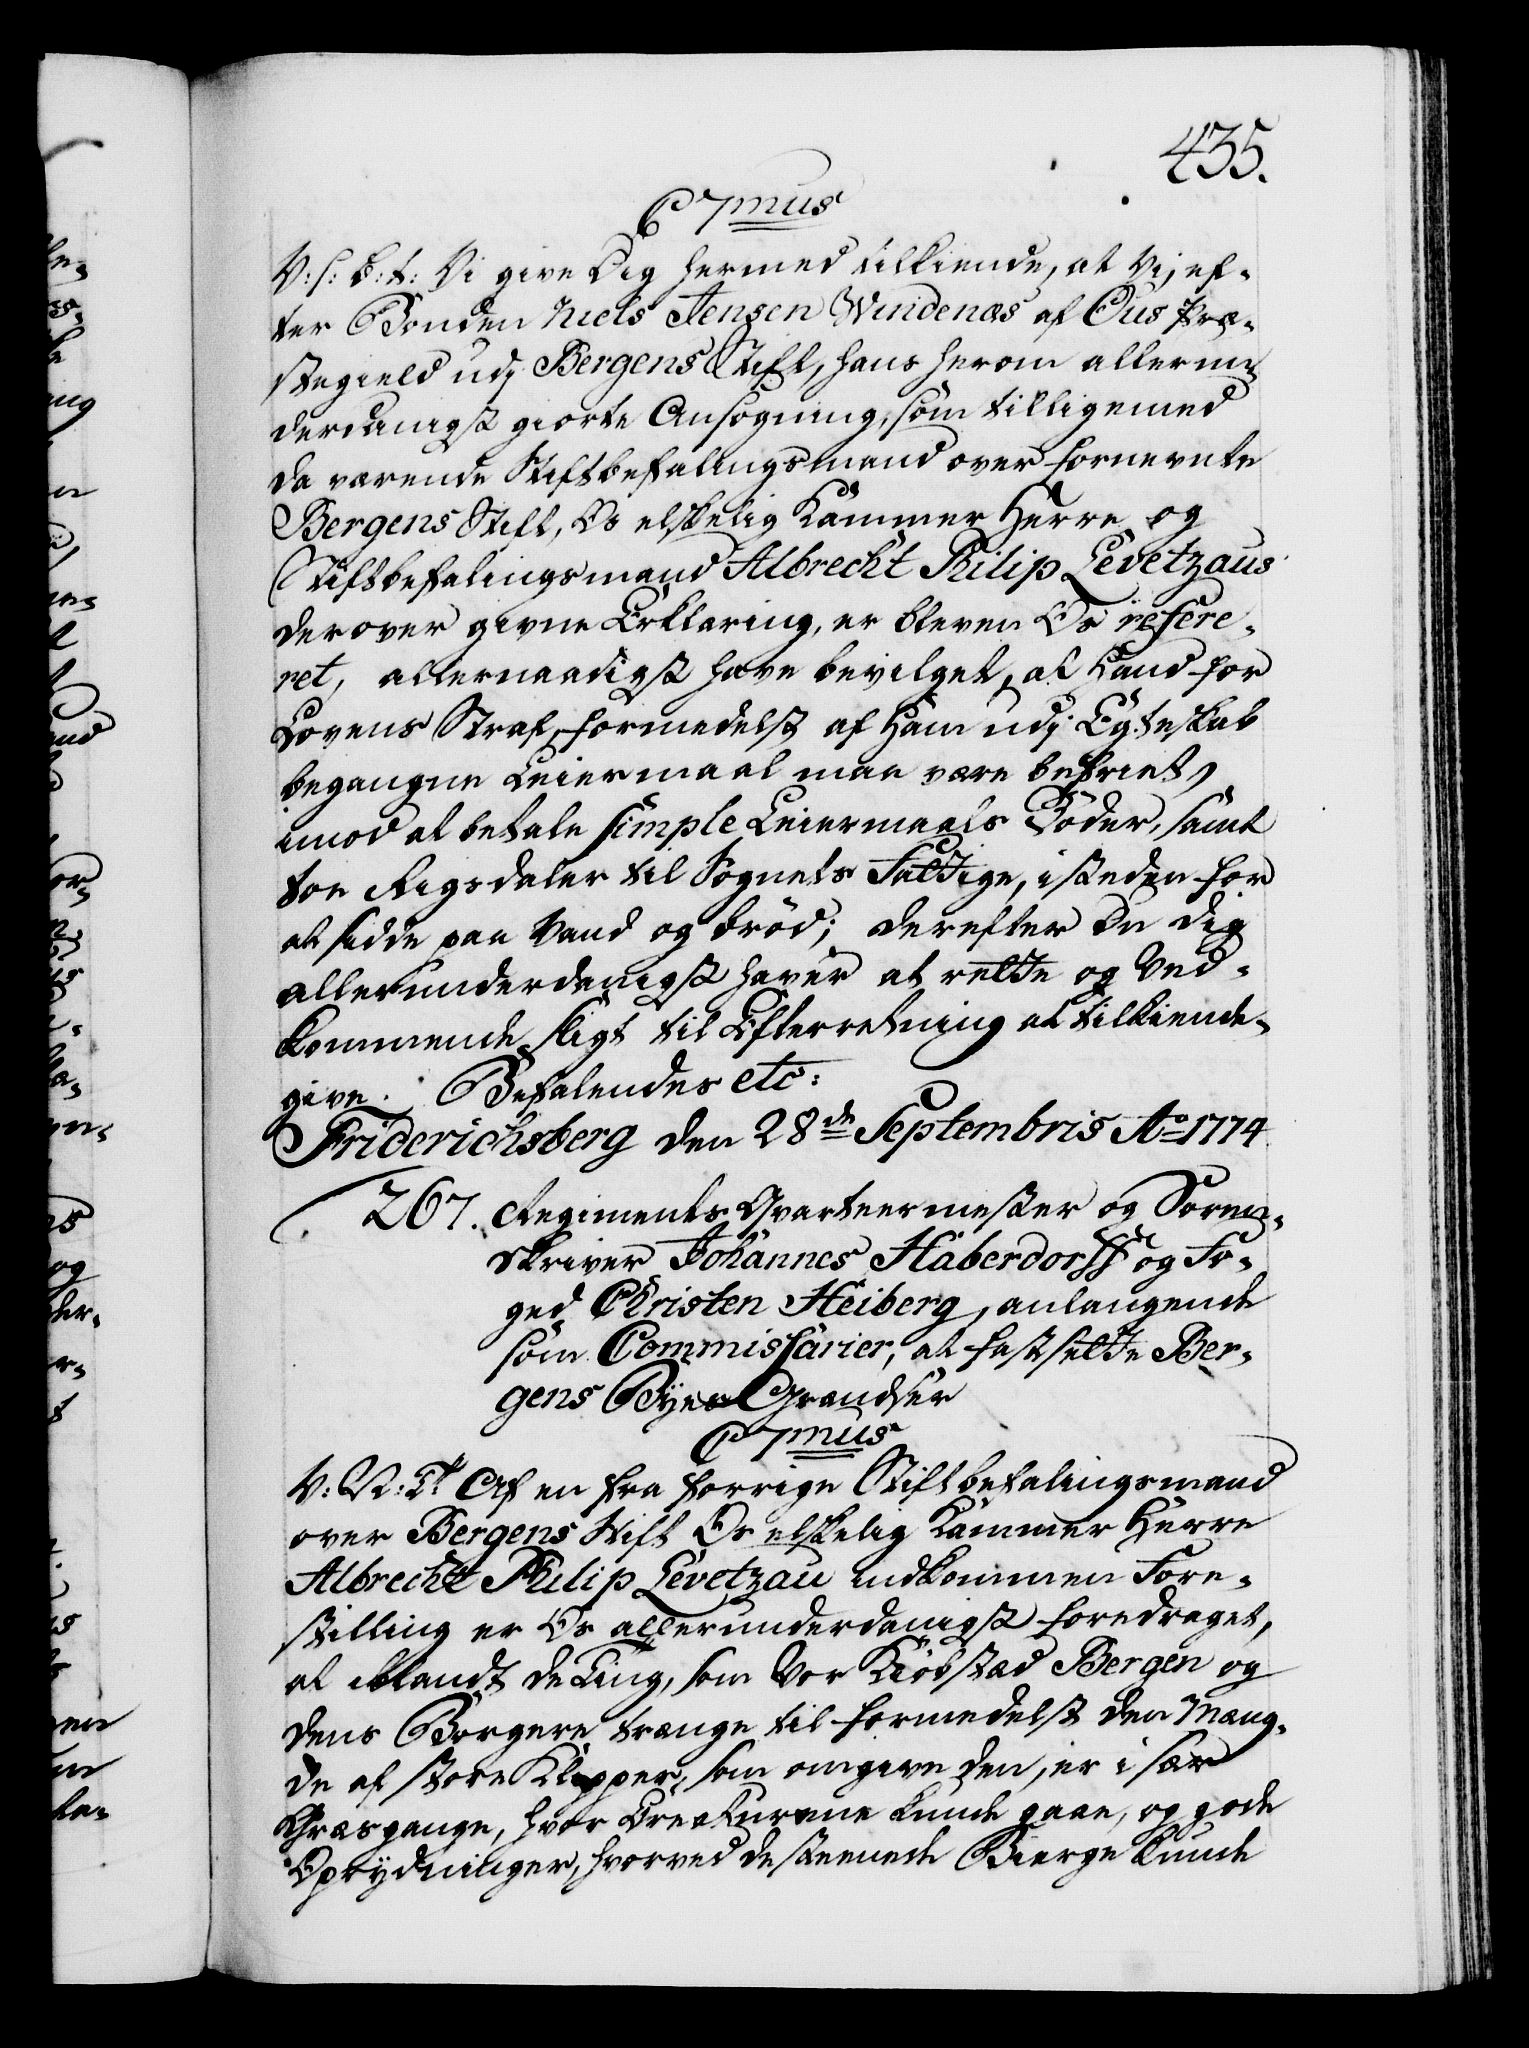 435.
C 7mus
V: s: B: t: Vi give Dig hermed tilkiende, at Vi, ef-
ter Bonden Niels Jensen Windenæs af Ous Præ-
stegield udj Bergens Stift, hans herom allerun-
derdanigst giorte Ansøgning, som tilligemed
da værende Stiftbefalingsmand over fornevnte
Bergens Stift, Os elskelig Kammer Herre og
Stiftbefalingsmand Albrecht Philip Levetzaus
derover givne Erklæring, er bleven Os refere-
ret, allernaadigst have bevilget, at Hand for
Lovens Straf, formedelst af Ham udj Egteskab
begangne Leiermaal maa være befriet,
imod at betale simple Leiermaals Bøder, samt
toe Rigsdaler til Sognets Fattige, isteden for
at sidde paa Vand og brød; derefter Du dig
allerunderdanigst haver at rette og Ved-
kommende sligt til Efterretning at tilkiende-
give. Befalendes etc:
Friderichsberg den 28de Septembris Ao 1774
267. Regiments Qvarteermester og Soren-
skriver Johannes Haberdorff og Fo-
ged Christen Heiberg, anlangende
som Commissarier, at fastsætte Ber-
gens Byes Grændser
C 7mus
V: G: T: Af en fra forrige Stiftbefalingsmand
over Bergens Stift Os elskelig Kammer Herre
Albrecht Philip Levetzau indkommen Fore-
stilling er Os allerunderdanigst foredraget,
at iblandt de Ting, som Vor Kiøbstæd Bergen og
dens Borgere trænge til formedelst den Mæng-
de af store Klipper, som omgive den, er i sær
Græsgange, hvor Creaturene kunde gaae, og gode
Oprydninger, hvorved de steenede Bierge kunde